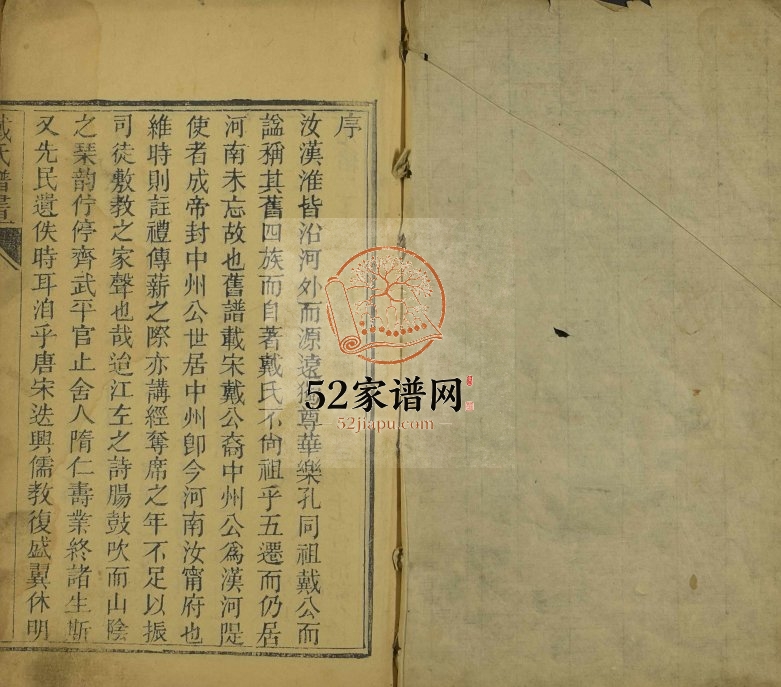 序
汝漢淮皆沿河外而源遠獨尊華樂孔同祖戴公而
諡稱其舊四族而自著戴氏不尙祖乎五遷而仍居
河南未忘故也舊譜載宋戴公裔中州公爲漢河隄
使者成帝封中州公世居中州卽今河南汝甯府也
維時則註禮傳薪之際亦講經奪席之年不足以振
司徒敷教之家聲也哉迨江左之詩腸鼓吹而山陰
之琴韵佇停齊武平官止舍人隋仁壽業終諸生斯
又先民遺佚時耳洎乎唐宋迭興儒教復盛翼休明
戴氏譜書
52家谱网
52jiapu.com